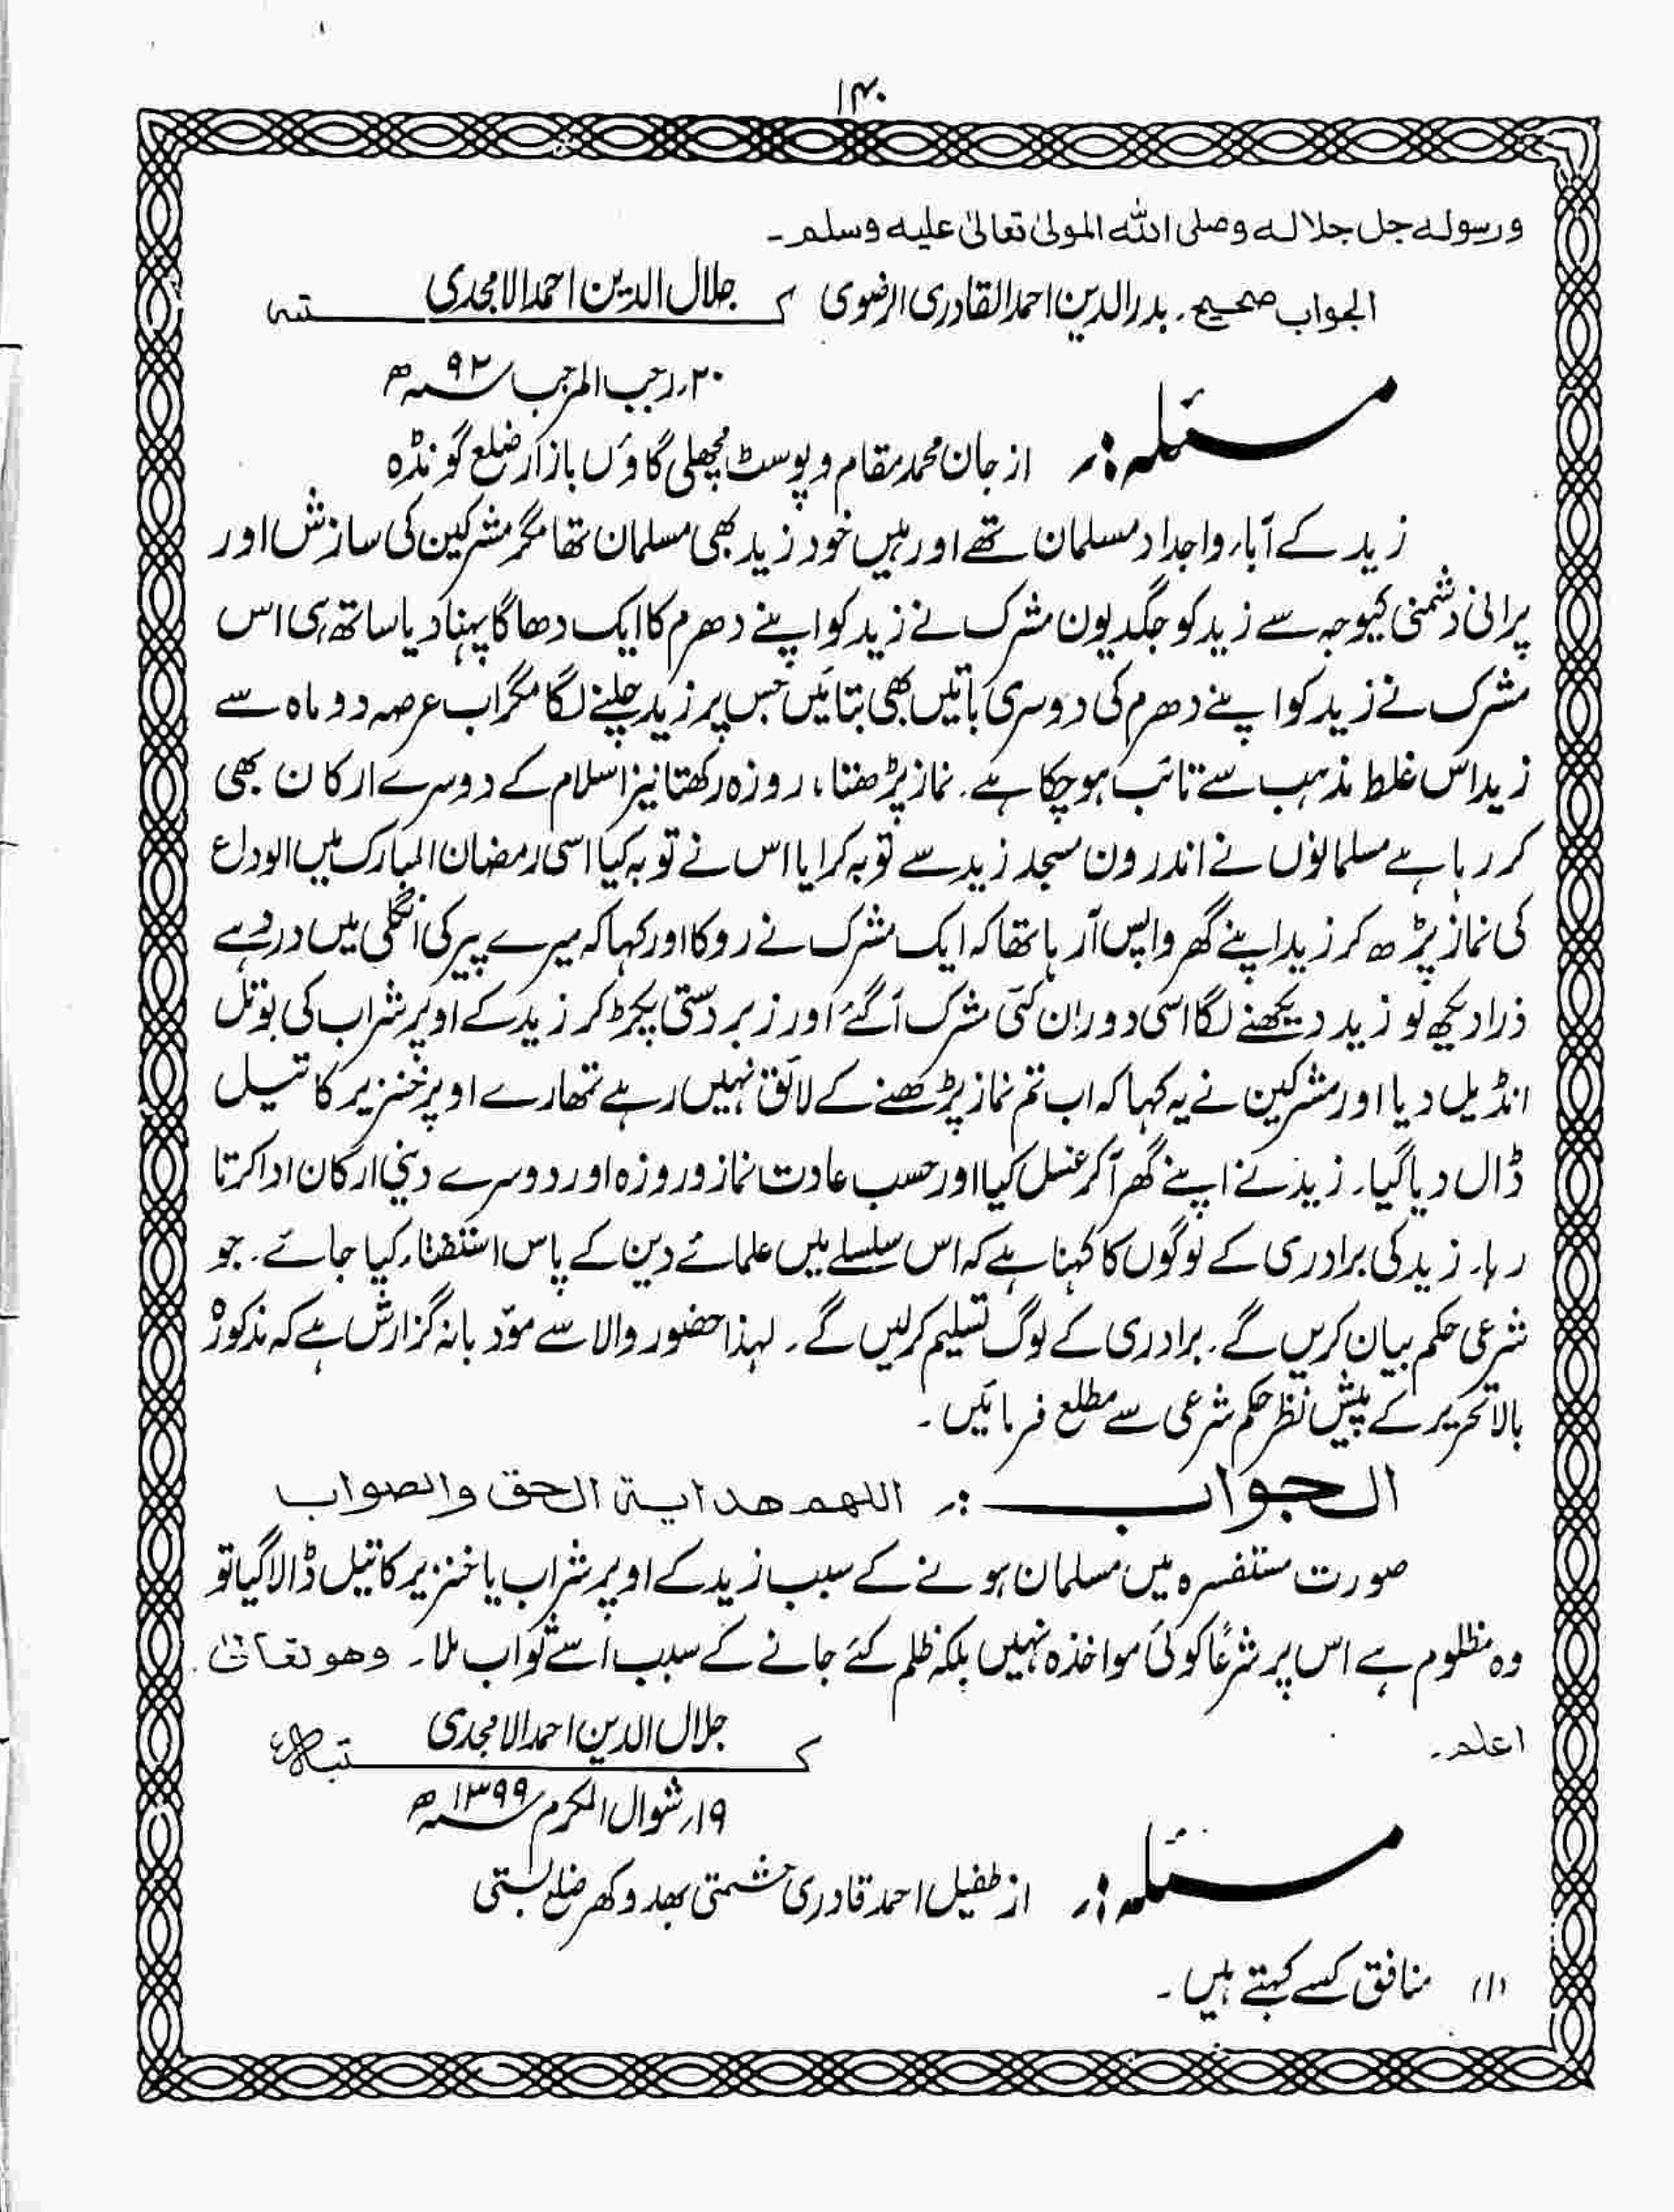 ۱۴۰
ورسولہ جل جلالہ وصلی اللہ المولیٰ تعالیٰ علیہ وسلم۔
الجواب صحیح۔ بدرالدین احمد القادری الرضوی کتبہ جلال الدین احمد الامجدی
۲۰؍رجب المرجب ۹۲ھ
مسئلہ:۔ از جان محمد مقام و پوسٹ مچھلی گاؤں بازار ضلع گونڈہ
زید کے آباء واجداد مسلمان تھے اور ہیں خود زید بھی مسلمان تھا مگر مشرکین کی سازش اور
پرانی دشمنی کیوجہ سے زید کو جگدیون مشرک نے زید کو اپنے دھرم کا ایک دھاگا پہنا دیا ساتھ ہی اس
مشرک نے زید کو اپنے دھرم کی دوسری باتیں بھی بتائیں جس پر زید چلنے لگا مگر اب عرصہ دو ماہ سے
زید اس غلط مذہب سے تائب ہو چکا ہے۔ نماز پڑھتا، روزہ رکھتا نیز اسلام کے دوسرے ارکان بھی
کر رہا ہے مسلمانوں نے اندرون مسجد زید سے توبہ کرایا اس نے توبہ کیا اسی رمضان المبارک میں الوداع
کی نماز پڑھ کر زید اپنے گھر واپس آرہا تھا کہ ایک مشرک نے روکا اور کہا کہ میرے پیر کی انگلی میں درد ہے
ذرا دیکھ لو زید دیکھنے لگا اسی دوران کئی مشرک آگئے اور زبردستی پکڑ کر زید کے اوپر شراب کی بوتل
انڈیل دیا اور مشرکین نے یہ کہا کہ اب تم نماز پڑھنے کے لائق نہیں رہے تمھارے اوپر خنزیر کا تیل
ڈال دیا گیا۔ زید نے اپنے گھر آکر غسل کیا اور حسب عادت نماز و روزہ اور دوسرے دینی ارکان ادا کرتا
رہا۔ زید کی برادری کے لوگوں کا کہنا ہے کہ اس سلسلے میں علمائے دین کے پاس استفتاء کیا جائے۔ جو
شرعی حکم بیان کریں گے۔ برادری کے لوگ تسلیم کرلیں گے۔ لہذا حضور والا سے مؤدبانہ گزارش ہے کہ مذکورہ
بالا تحریر کے پیش نظر حکم شرعی سے مطلع فرمائیں۔
الجواب:۔ اللھم ھدایۃ الحق والصواب
صورت مستفسرہ میں مسلمان ہونے کے سبب زید کے اوپر شراب یا خنزیر کا تیل ڈالا گیا تو
وہ مظلوم ہے اس پر شرعًا کوئی مواخذہ نہیں بلکہ ظلم کئے جانے کے سبب اسے ثواب ملا۔ وھو تعالیٰ
اعلم۔
کتبہ جلال الدین احمد الامجدی
۱۹؍شوال المکرم ۱۳۹۹ھ
مسئلہ:۔ از طفیل احمد قادری حشمتی بھدوکھر ضلع بستی
(۱) منافق کسے کہتے ہیں۔